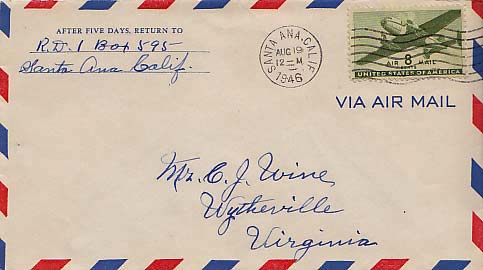 AFTER FIVE DAYS, RETURN TO
R.D. 1 Box 595
Santa Ana Calif.
SANTA ANA, CALIF.
AUG 19
12 - M
1946
AIR 8 MAIL
CENTS
UNITED STATES OF AMERICA
VIA AIR MAIL
Mr. C. J. Wine
Wytheville
Virginia